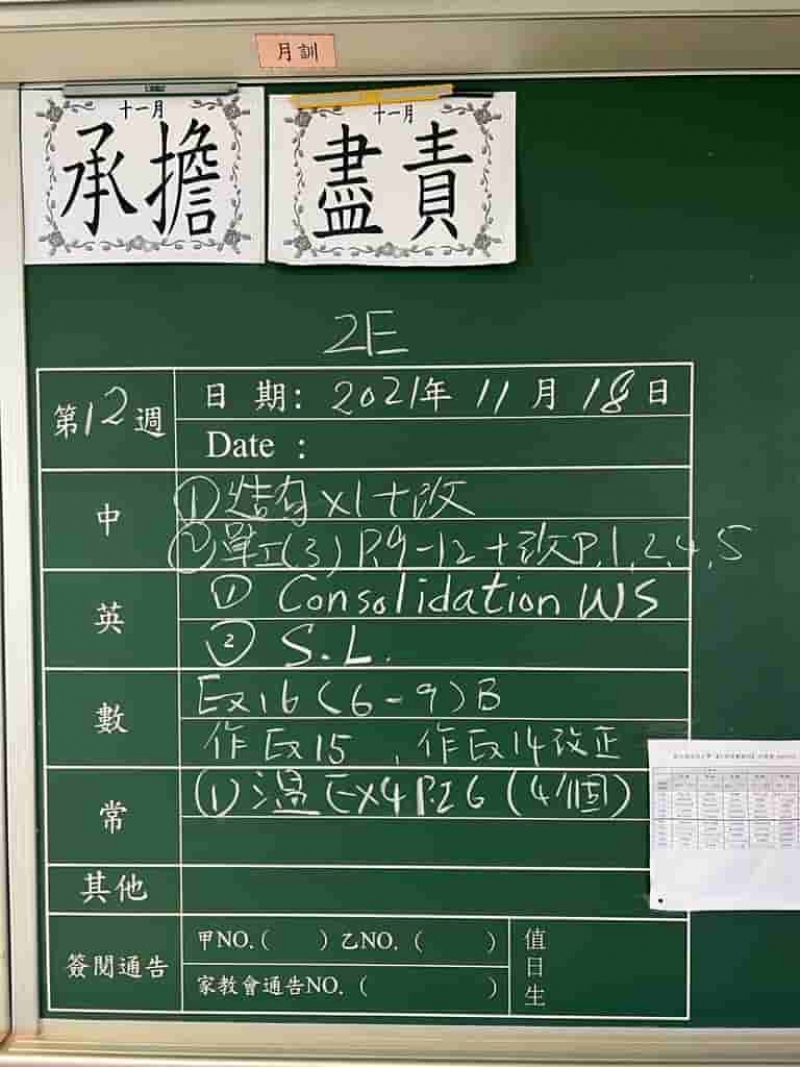 月訓
十一月
承擔
十一月
盡責
2E
第12週
日 期: 2021年 11 月 18 日
Date :
中
① 造句 x1+改
② 單工(3) P.9-12+改P.1,2,4,5
英
① Consolidation WS
② S.L.
數
Ex16(6-9)B
作Ex15 , 作Ex14改正
常
① 溫Ex4 P.26 (4個)
其他
簽閱通告
甲NO.( ) 乙NO. ( )
家教會通告NO. ( )
值日生